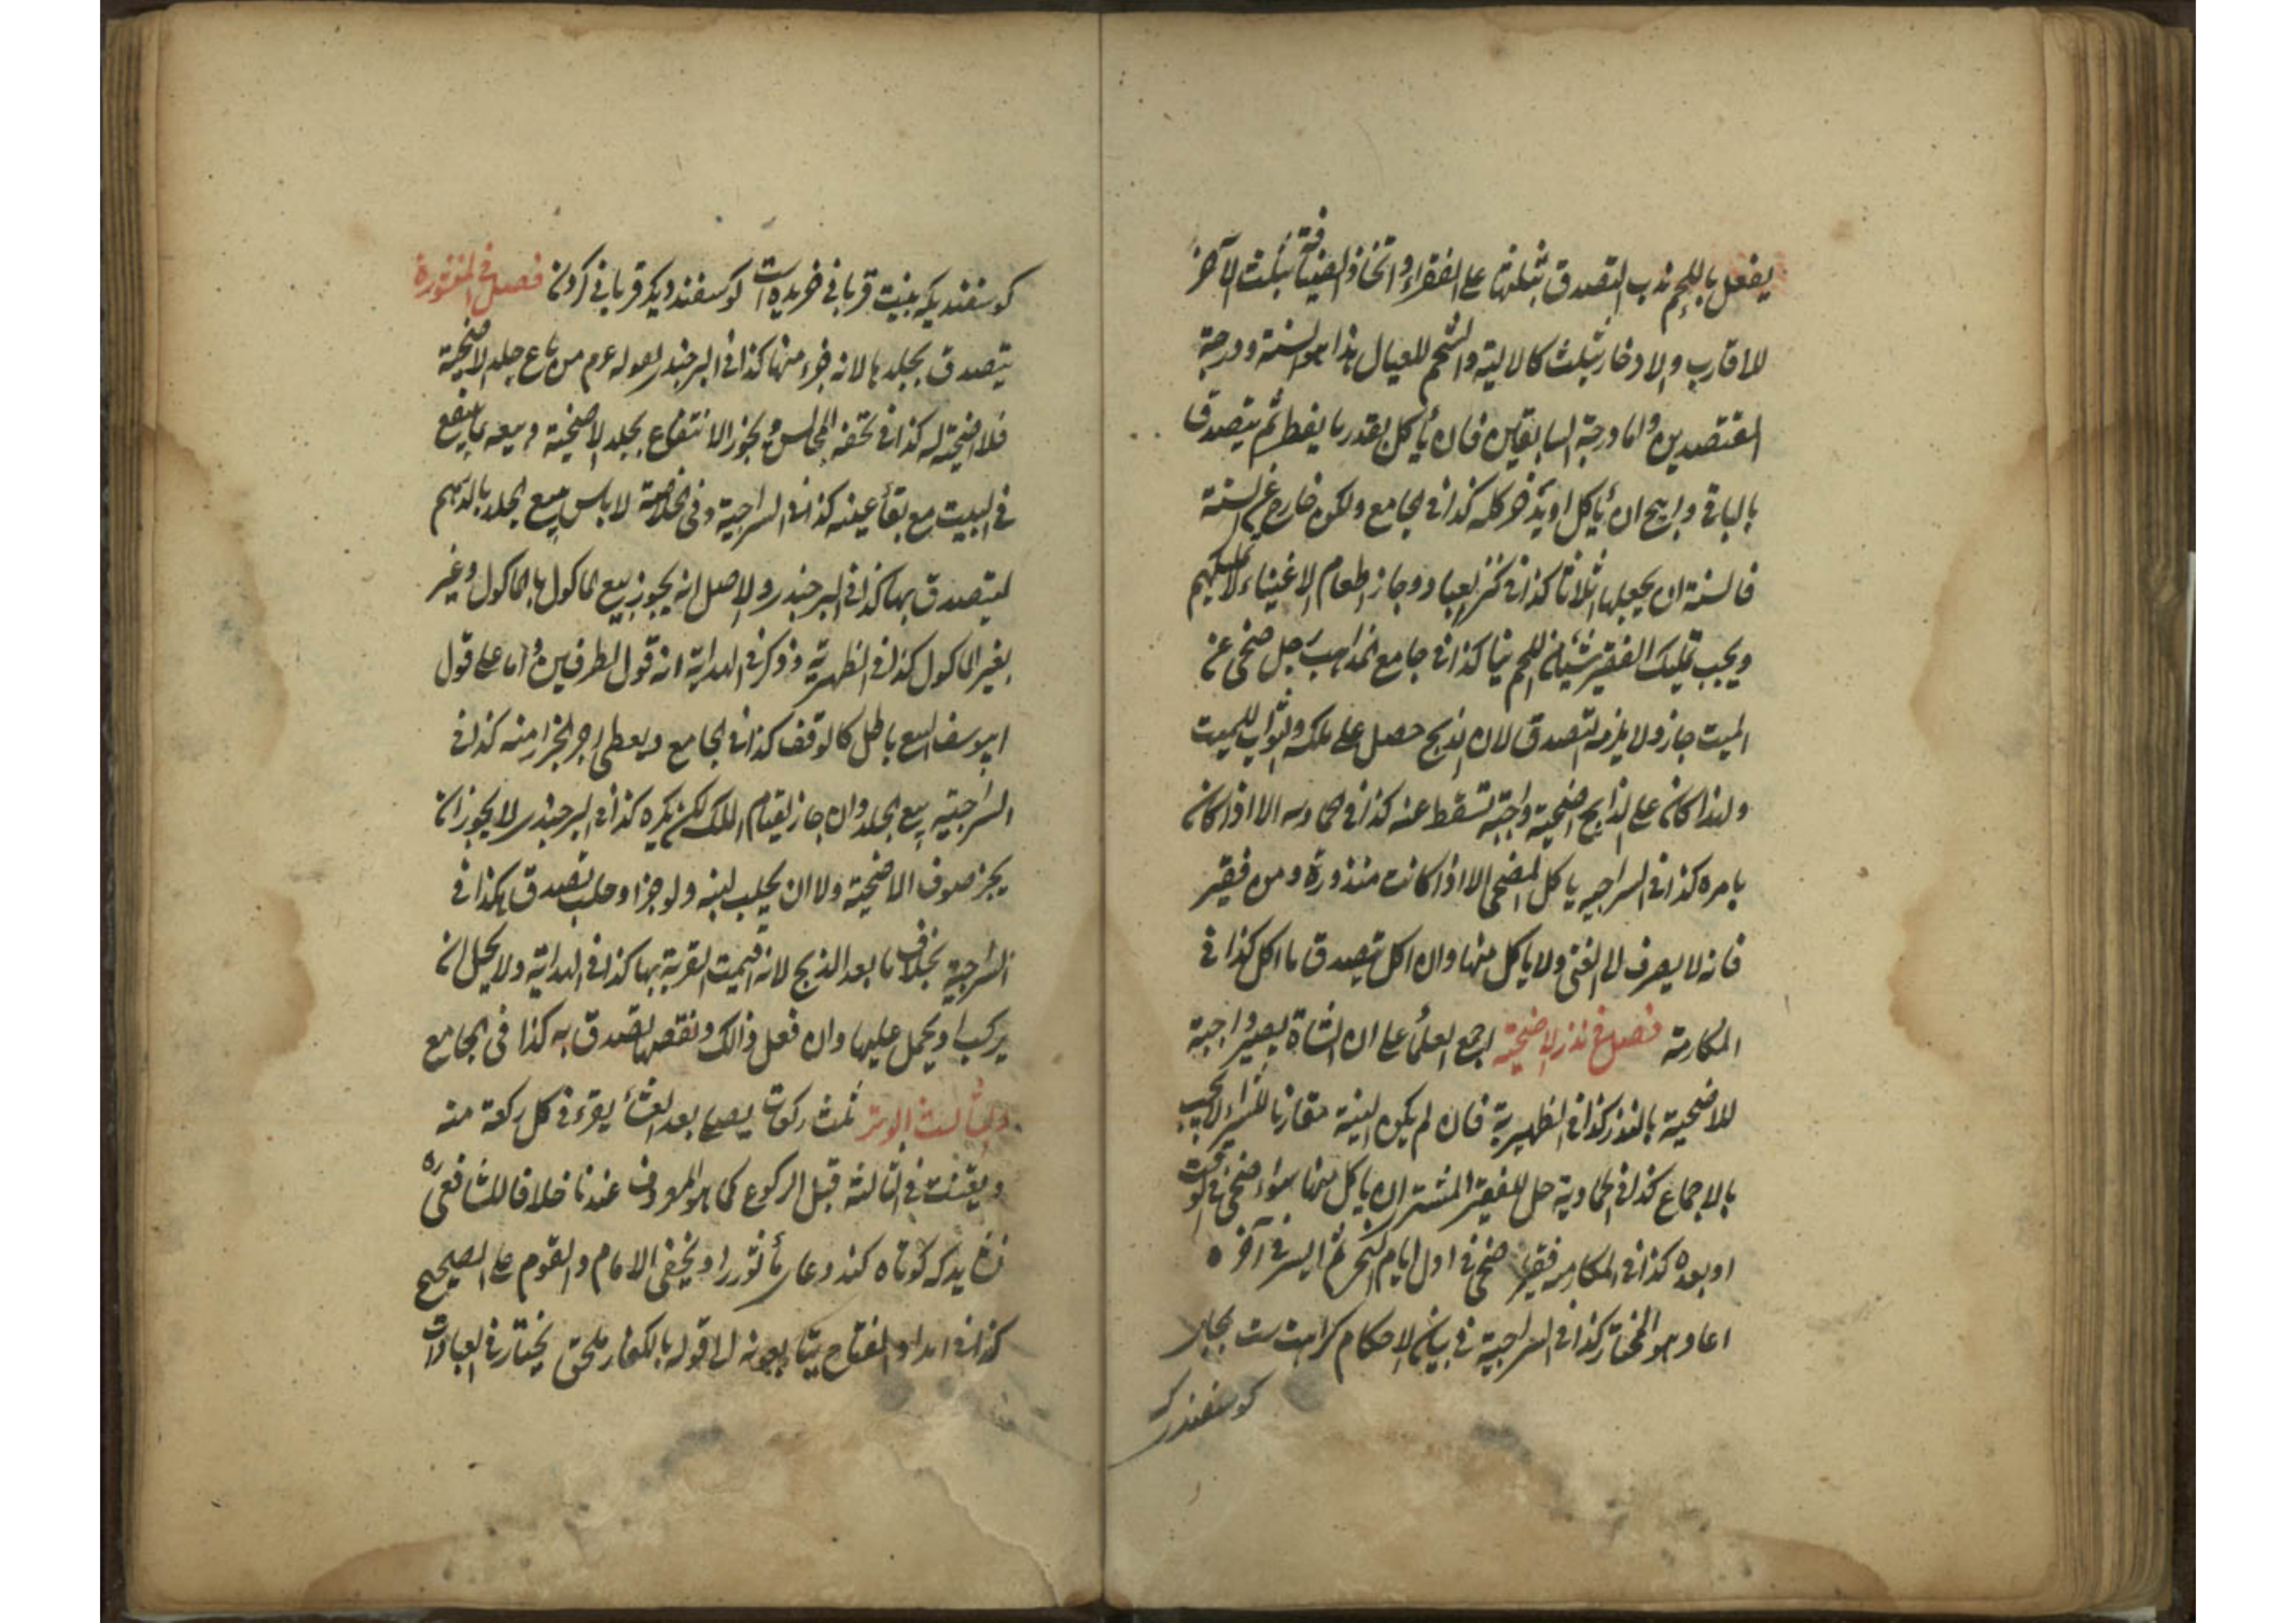 يفعل باللحم ندب التصدق بثلثها على الفقراء واتخاذ الضيافة بثلث الآخر
للاقارب والادخار بثلث كالالية والشحم للعيال هذا هو السنة ودرجة
المقتصدين واما درجة السابقين فان يأكل بقدر ما يفطر ثم يتصدق
بالباقي وابيح ان يأكل او يدخر كله كذا في الجامع ولكن خارج عن السنة
فالسنة ان يجعلها اثلاثا كذا في كنز العباد وجاز اطعام الاغنياء
ويجب تمليك الفقير شيئا من اللحم نيا كذا في جامع المذاهب رجل ضحى عن
الميت جاز ولا يلزمه التصدق لان الذبح حصل على ملكه والثواب للميت
ولهذا كان على الذابح اضحية واجبة تسقط عنه كذا في الحاويه الا اذا كان
بامره كذا في السراجيه ياكل المضحى الا اذا كانت منذورة ومن فقير
فانه لا يصرف الى الغني ولا ياكل منها وان اكل تصدق ما اكل كذا في
المكارمة فصل في نذر الاضحية اجمع العلماء على ان الشاة يصير واجبة
للاضحية بالنذر كذا في الظهيرية فان لم يكن النية مقارنا للشراء لا يجب
بالاجماع كذا في الحاوية حل للفقير المشتر ان ياكل منها سواء ضحى في الوقت
او بعده كذا في المكارمه فقير ضحى في اول ايام النحر ثم ايسر في آخره
اعاد هو المختار كذا في السراجية في بيان الاحكام كراهت است بجاى
كوسفند كه
كوسفنديكه بنيت قرباني خريده است كوسفند ديكر قرباني كردن فصل في المنثورة
يتصدق بجلدها لانه جزء منها كذا في البرجندى لقوله عم من باع جلد الاضحية
فلا اضحية له كذا في تحفة المجالس ويجوز الانتفاع بجلد الاضحية وبيعه بما ينفع
في البيت مع بقاء عينه كذا في السراجية وفي الخلاصة لا باس ببيع الجلد بالدرهم
ليتصدق بها كذا في البرجندى والاصل انه يجوز بيع الماكول بالماكول وغير
بغير الماكول كذا في الظهيرية وذكر في الهداية انه قول الطرفين واما على قول
ابيوسف البيع باطل كالوقف كذا في الجامع ويعطى اجر الجزار منه كذا في
السراجية بيع الجلد وان جاز لقيام الملك لكن يكره كذا في البرجندى لا يجوز ان
يجز صوف الاضحية ولا ان يحلب لبنه ولو جز او حلب تصدق هكذا في
السراجية بخلاف ما بعد الذبح لانه اقيمت القربة بها كذا في الهداية ولا يحل ان
يركب او يحمل عليها وان فعل ذالك ونقصها تصدق به كذا في الجامع
والثالث الوتر ثلث ركعات يصلى بعد العشاء يقرء في كل ركعة منه
ويقنت في الثالثة قبل الركوع كما هو المعروف عندنا خلافا للشافعى ره
كوتاه كند دعاى مأثور را ويخفى الامام والقوم على الصحيح
كذا في امداد الفتاح يتابعونه الى قوله بالكفار ملحق يختار في العبادات